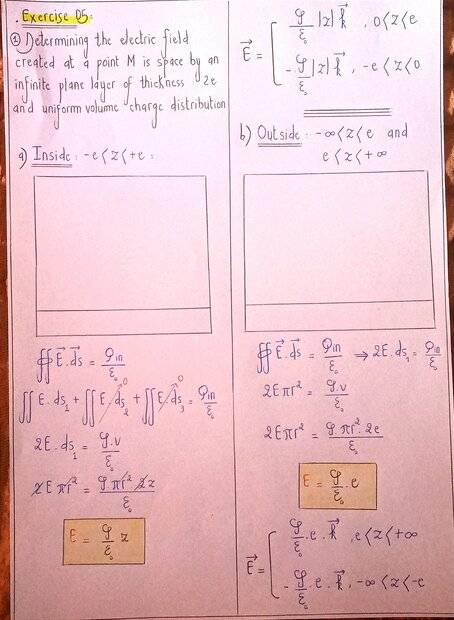 . Exercise 05:
① Determining the electric field
created at a point M is space by an
infinite plane layer of thickness 2e
and uniform volume charge distribution
a) Inside : -e < z < +e :
∯ E⃗.ds⃗ = Qin/ξ₀
∬ E.ds₁ + ∬ E.ds₂ + ∬ E.ds₃ = Qin/ξ₀
0 0
2E.ds₁ = ρ.v/ξ₀
2Eπr² = ρ.πr² 2z/ξ₀
E = ρ/ξ₀ z
E⃗ = { ρ/ξ₀ |z| k⃗ , 0 < z < e
- ρ/ξ₀ |z| k⃗ , -e < z < 0
b) Outside : -∞ < z < e and
e < z < +∞
∯ E⃗.ds⃗ = Qin/ξ₀ ⇒ 2E.ds₁ = Qin/ξ₀
2Eπr² = ρ.v/ξ₀
2Eπr² = ρ.πr².2e/ξ₀
E = ρ/ξ₀ . e
E⃗ = { ρ/ξ₀ . e . k⃗ , e < z < +∞
- ρ/ξ₀ . e . k⃗ , -∞ < z < -e